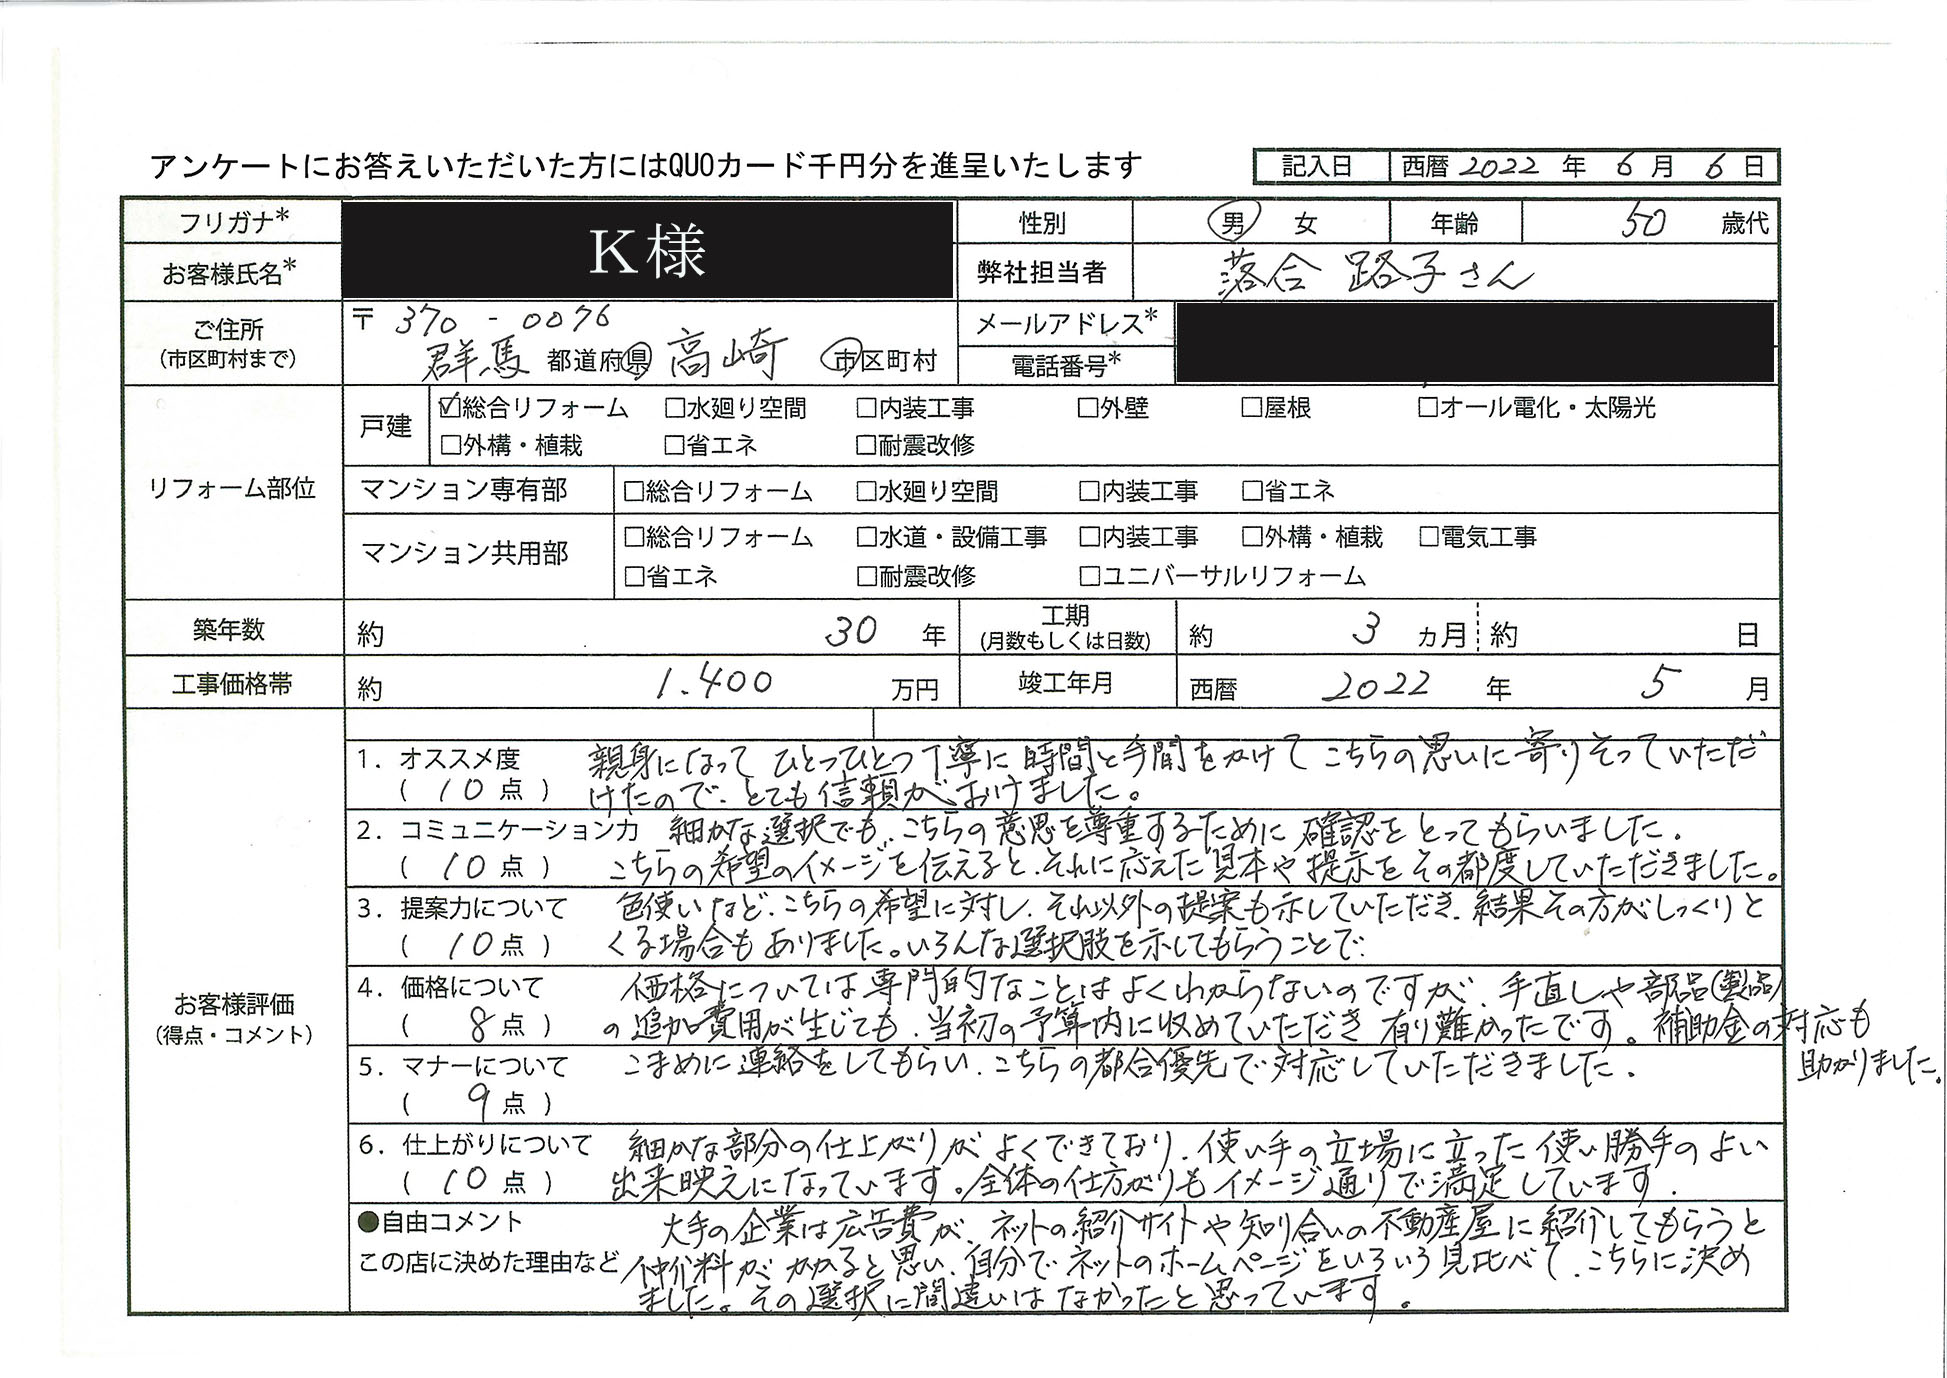 アンケートにお答えいただいた方にはQUOカード千円分を進呈いたします
記入日 西暦 2022 年 6 月 6 日
フリガナ* K様 性別 男 女 年齢 50 歳代
お客様氏名* 弊社担当者 落合 路子さん
ご住所 〒 370 - 0076 メールアドレス*
(市区町村まで) 群馬 都道府県 高崎 市区町村 電話番号*
リフォーム部位
戸建 ☑総合リフォーム □水廻り空間 □内装工事 □外壁 □屋根 □オール電化・太陽光
□外構・植栽 □省エネ □耐震改修
マンション専有部 □総合リフォーム □水廻り空間 □内装工事 □省エネ
マンション共用部 □総合リフォーム □水道・設備工事 □内装工事 □外構・植栽 □電気工事
□省エネ □耐震改修 □ユニバーサルリフォーム
築年数 約 30 年 工期 (月数もしくは日数) 約 3 ヵ月 約 日
工事価格帯 約 1.400 万円 竣工年月 西暦 2022 年 5 月
お客様評価
(得点・コメント)
1. オススメ度 親身になって ひとつひとつ丁寧に 時間と手間をかけて こちらの思いに寄りそっていただ
( 10 点 ) けたので、とても信頼がおけました。
2. コミュニケーション力 細かな選択でも、こちらの意思を尊重するために 確認をとってもらいました。
( 10 点 ) こちらの希望のイメージを伝えると、それに応えた見本や提示をその都度していただきました。
3. 提案力について 色使いなど、こちらの希望に対し、それ以外の提案も示していただき、結果その方がしっくりと
( 10 点 ) くる場合もありました。いろんな選択肢を示してもらうことで、
4. 価格について 価格については専門的なことはよくわからないのですが、手直しや部品(製品)
( 8 点 ) の追加費用が生じても、当初の予算内に収めていただき 有り難かったです。補助金の対応も
助かりました。
5. マナーについて こまめに連絡をしてもらい、こちらの都合優先で対応していただきました。
( 9 点 )
6. 仕上がりについて 細かな部分の仕上がりがよくできており、使い手の立場に立った使い勝手のよい
( 10 点 ) 出来映えになっています。全体の仕方がりもイメージ通りで満足しています。
●自由コメント 大手の企業は広告費が、ネットの紹介サイトや知り合いの不動産屋に紹介してもらうと
この店に決めた理由など 仲介料がかかると思い、自分でネットのホームページをいろいろ見比べて、こちらに決め
ました。その選択に間違いはなかったと思っています。